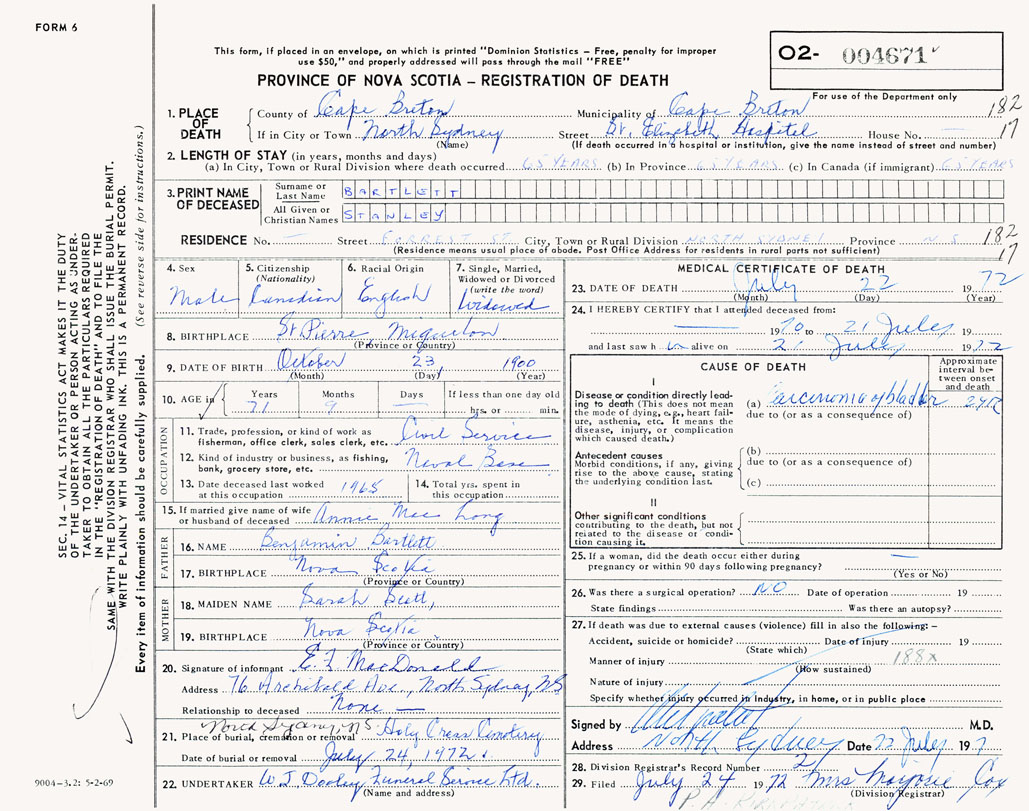 FORM 6
This form, if placed in an envelope, on which is printed "Dominion Statistics – Free, penalty for improper
use $50," and properly addressed will pass through the mail "FREE"
PROVINCE OF NOVA SCOTIA – REGISTRATION OF DEATH
02- 004671
For use of the Department only
1. PLACE OF DEATH
County of Cape Breton Municipality of Cape Breton 182
If in City or Town North Sydney Street St. Elizabeth Hospital House No. — 17
(Name) (If death occurred in a hospital or institution, give the name instead of street and number)
2. LENGTH OF STAY (in years, months and days)
(a) In City, Town or Rural Division where death occurred 65 YEARS (b) In Province 65 YEARS (c) In Canada (if immigrant) 65 YEARS
3. PRINT NAME OF DECEASED
Surname or Last Name BARTLETT
All Given or Christian Names STANLEY
RESIDENCE No. — Street FORREST ST. City, Town or Rural Division NORTH SYDNEY Province N.S 182
(Residence means usual place of abode. Post Office Address for residents in rural parts not sufficient) 17
4. Sex
Male
5. Citizenship (Nationality)
Canadian
6. Racial Origin
English
7. Single, Married, Widowed or Divorced (write the word)
Widowed
8. BIRTHPLACE St Pierre Miquelon
(Province or Country)
9. DATE OF BIRTH October 23 1900
(Month) (Day) (Year)
10. AGE in Years Months Days If less than one day old
71 9 — hrs. or min.
OCCUPATION
11. Trade, profession, or kind of work as fisherman, office clerk, sales clerk, etc. Civil Service
12. Kind of industry or business, as fishing, bank, grocery store, etc. Naval Base
13. Date deceased last worked at this occupation 1965
14. Total yrs. spent in this occupation
15. If married give name of wife or husband of deceased Annie Mac Long
FATHER
16. NAME Benjamin Bartlett
17. BIRTHPLACE Nova Scotia
(Province or Country)
MOTHER
18. MAIDEN NAME Sarah Scott,
19. BIRTHPLACE Nova Scotia
(Province or Country)
20. Signature of informant E. F. MacDonald
Address 76 Archibald Ave., North Sydney, NS
Relationship to deceased None —
North Sydney, N.S.
21. Place of burial, cremation or removal Holy Cross Cemetery
Date of burial or removal July 24, 1972.
22. UNDERTAKER W. J. Dooley Funeral Service Ltd.
(Name and address)
MEDICAL CERTIFICATE OF DEATH
23. DATE OF DEATH July 22 1972
(Month) (Day) (Year)
24. I HEREBY CERTIFY that I attended deceased from:
— 1970 to 21 July 19
and last saw h im alive on 21 July 1972
CAUSE OF DEATH
Approximate interval between onset and death
I
Disease or condition directly leading to death (This does not mean the mode of dying, e.g., heart failure, asthenia, etc. It means the disease, injury, or complication which caused death.)
(a) Carcinoma of bladder 2 yr
due to (or as a consequence of)
Antecedent causes
Morbid conditions, if any, giving rise to the above cause, stating the underlying condition last.
(b)
due to (or as a consequence of)
(c)
II
Other significant conditions
contributing to the death, but not related to the disease or condition causing it.
25. If a woman, did the death occur either during pregnancy or within 90 days following pregnancy? —
(Yes or No)
26. Was there a surgical operation? NO Date of operation 19
State findings Was there an autopsy?
27. If death was due to external causes (violence) fill in also the following: –
Accident, suicide or homicide? Date of injury 19
(State which)
Manner of injury 188x
(How sustained)
Nature of injury
Specify whether injury occurred in industry, in home, or in public place
Signed by M.D.
Address North Sydney Date 22 July 197
28. Division Registrar's Record Number 21
29. Filed July 24 1972 Mrs Marjorie Cox
(Division Registrar)
SEC. 14 – VITAL STATISTICS ACT MAKES IT THE DUTY
OF THE UNDERTAKER OR PERSON ACTING AS UNDER-
TAKER TO OBTAIN ALL THE PARTICULARS REQUIRED
IN THE "REGISTRATION OF DEATH" AND TO FILE THE
SAME WITH THE DIVISION REGISTRAR WHO SHALL ISSUE THE BURIAL PERMIT.
WRITE PLAINLY WITH UNFADING INK. THIS IS A PERMANENT RECORD.
Every item of information should be carefully supplied. (See reverse side for instructions.)
9004–3.2: 5-2-69